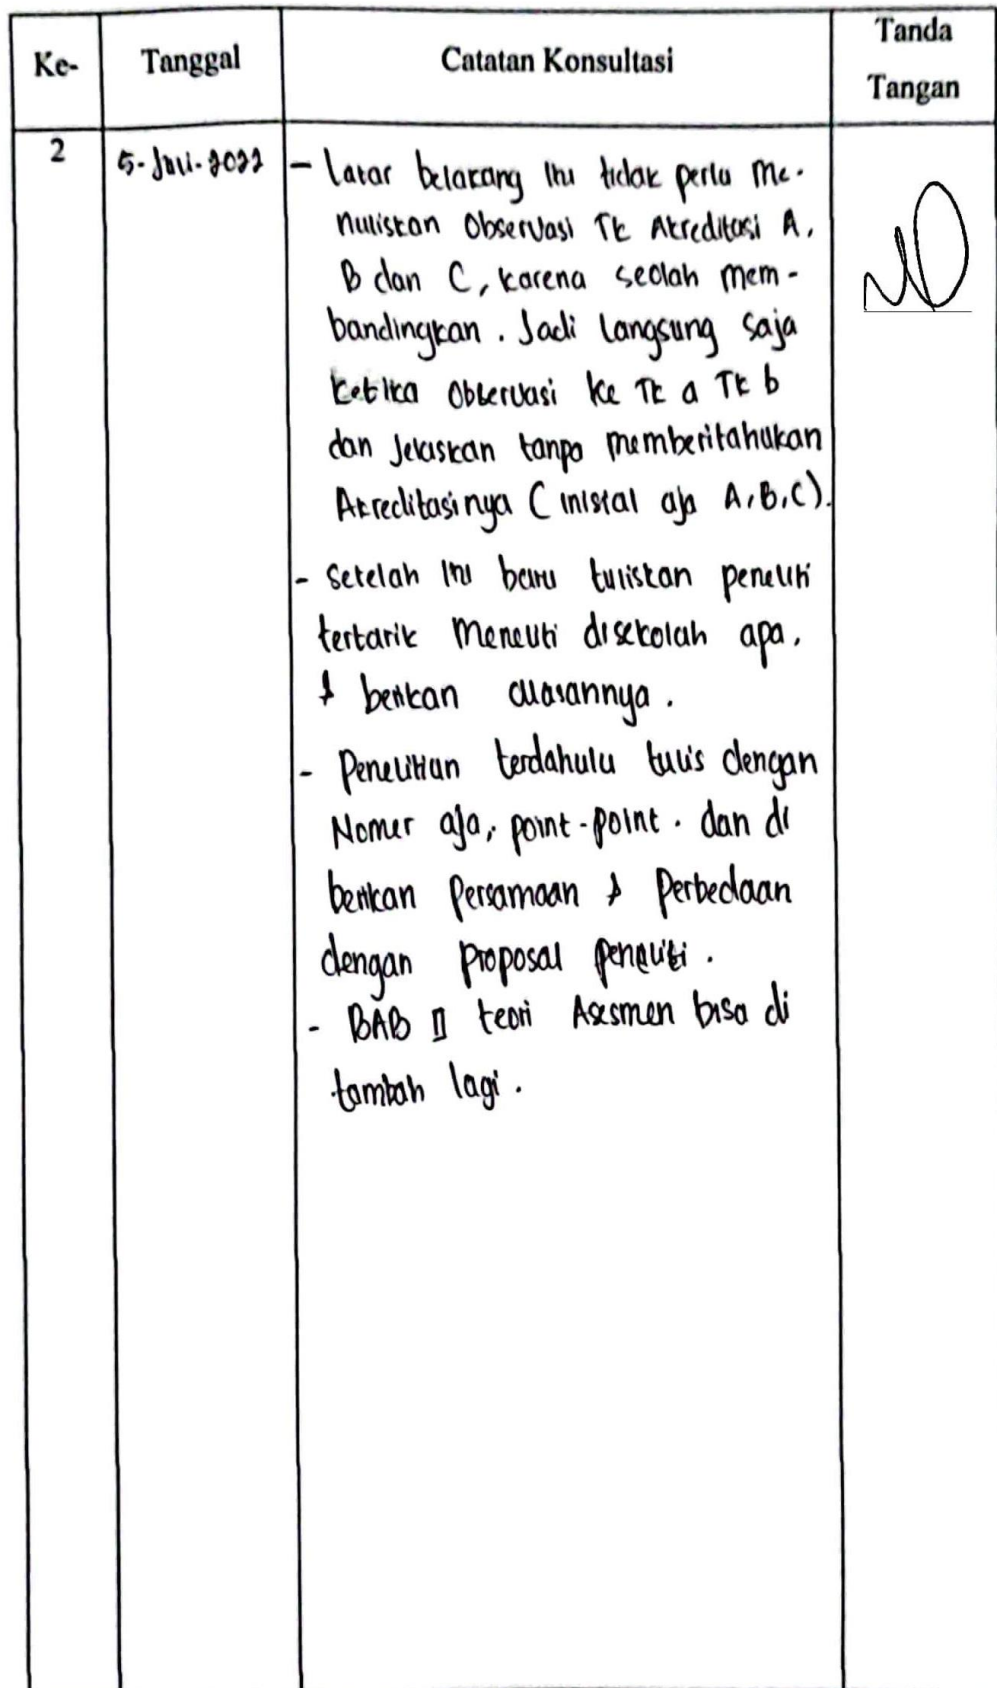 Ke- Tanggal Catatan Konsultasi Tanda Tangan
2 5-Juli-2022 - Latar belakang itu tidak perlu me-
nuliskan Observasi Tk Akreditasi A,
B dan C, karena seolah mem-
bandingkan. Jadi langsung saja
ketika Observasi ke Tk a Tk b
dan Jelaskan tanpa memberitahukan
Akreditasinya (inisial aja A,B,C).
- Setelah itu baru tuliskan peneliti
tertarik Meneliti disekolah apa,
& berikan alasannya.
- Penelitian terdahulu tulis dengan
Nomer aja, point-point. dan di
berikan Persamaan & Perbedaan
dengan Proposal peneliti.
- BAB II teori Asesmen bisa di
tambah lagi.